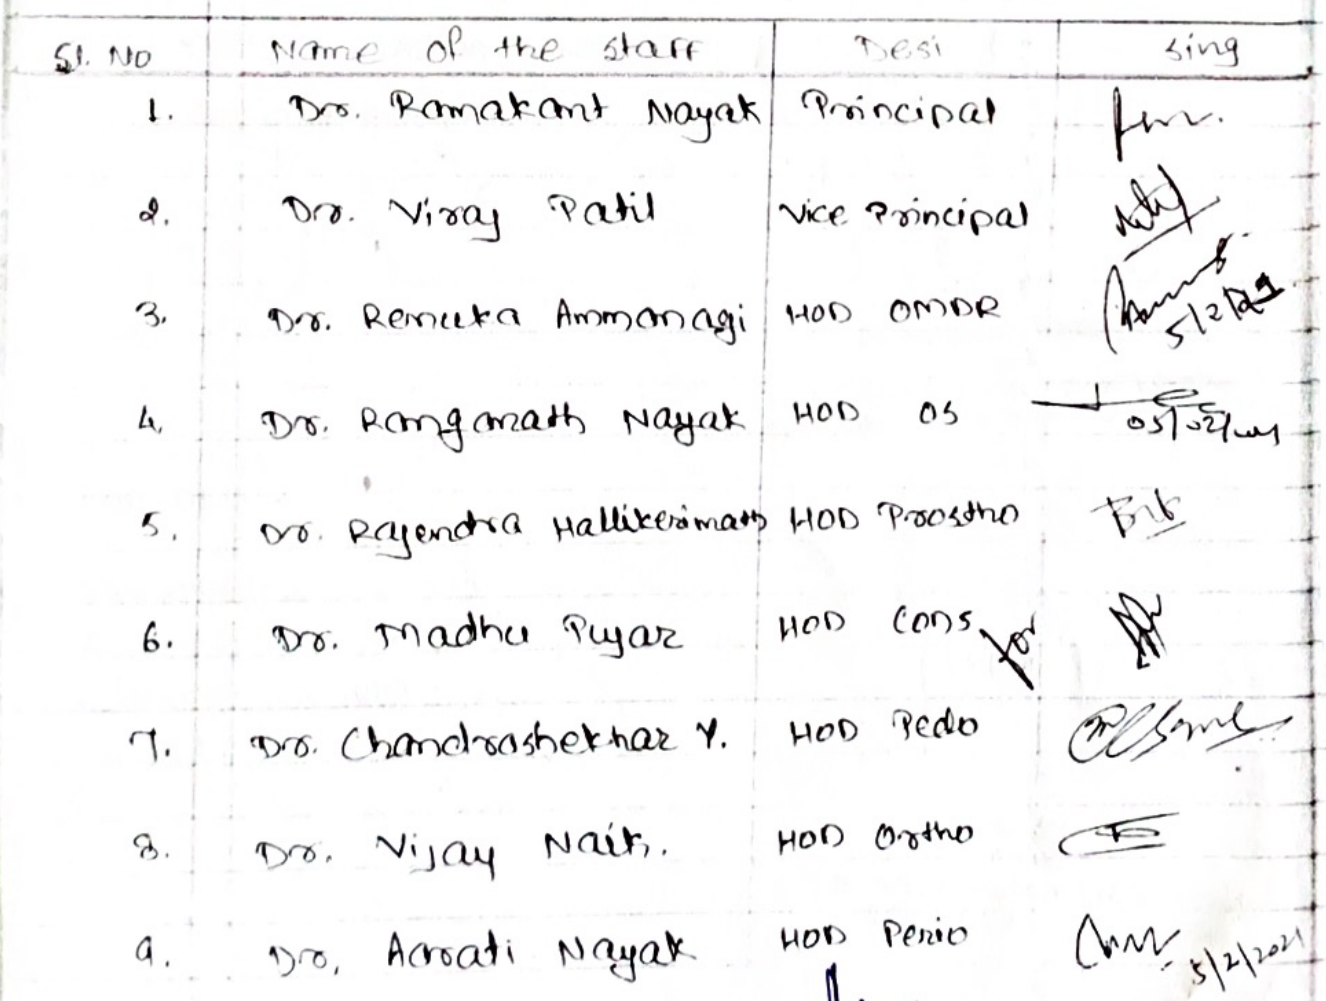 Sl. No Name of the staff Desi sing
1. Dr. Ramakant Nayak Principal
2. Dr. Viraj Patil Vice Principal
3. Dr. Renuka Ammanagi HOD OMDR 5/2/21
4. Dr. Ranganath Nayak HOD OS 05/02/2021
5. Dr. Rajendra Hallikerimath HOD Prostho
6. Dr. Madhu Pujar HOD Cons for
7. Dr. Chandrashekhar Y. HOD Pedo
8. Dr. Vijay Naik. HOD Ortho
9. Dr. Aarati Nayak HOD Perio 5/2/2021